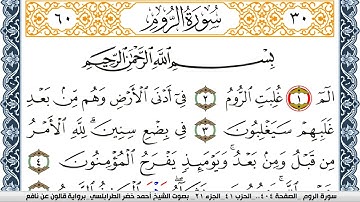 ٣٠ سُورَةُ الرُّومِ ٦٠
بِسْمِ اللَّهِ الرَّحْمَٰنِ الرَّحِيمِ
الٓمٓ ١ غُلِبَتِ الرُّومُ ٢ فِي أَدْنَى الْأَرْضِ وَهُم مِّنۢ بَعْدِ
غَلَبِهِمْ سَيَغْلِبُونَ ٣ فِي بِضْعِ سِنِينَ ۗ لِلَّهِ الْأَمْرُ
مِن قَبْلُ وَمِنۢ بَعْدُ ۚ وَيَوْمَئِذٍ يَفْرَحُ الْمُؤْمِنُونَ ٤
سورة الروم الصفحة ٤٠٤.. الحزب ٤١ الجزء ٢١.. بصوت الشيخ أحمد خضر الطرابلسي برواية قالون عن نافع